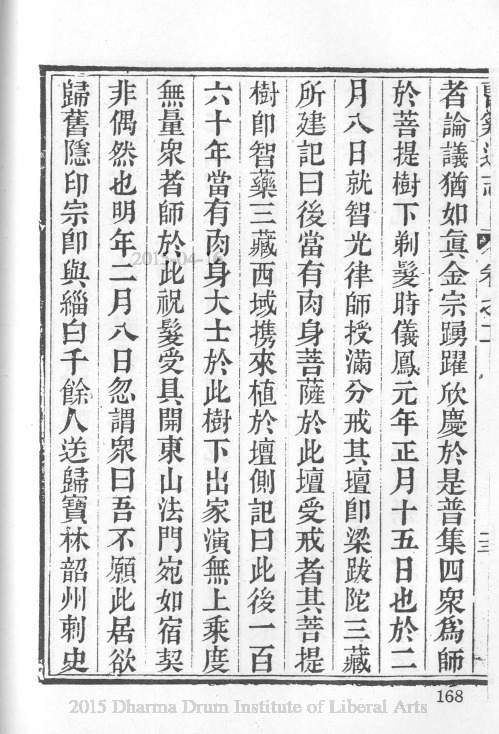 者論議猶如眞金宗踴躍欣慶於是普集四衆爲師
於菩提樹下剃髮時儀鳳元年正月十五日也於二
月八日就智光律師授滿分戒其壇卽梁跋陀三藏
所建記曰後當有肉身菩薩於此壇受戒者其菩提
樹卽智藥三藏西域携來植於壇側記曰此後一百
六十年當有肉身大士於此樹下出家演無上乘度
無量衆者師於此祝髮受具開東山法門宛如宿契
非偶然也明年二月八日忽謂衆曰吾不願此居欲
歸舊隱印宗卽與緇白千餘人送歸寶林韶州刺史
168
2015 Dharma Drum Institute of Liberal Arts